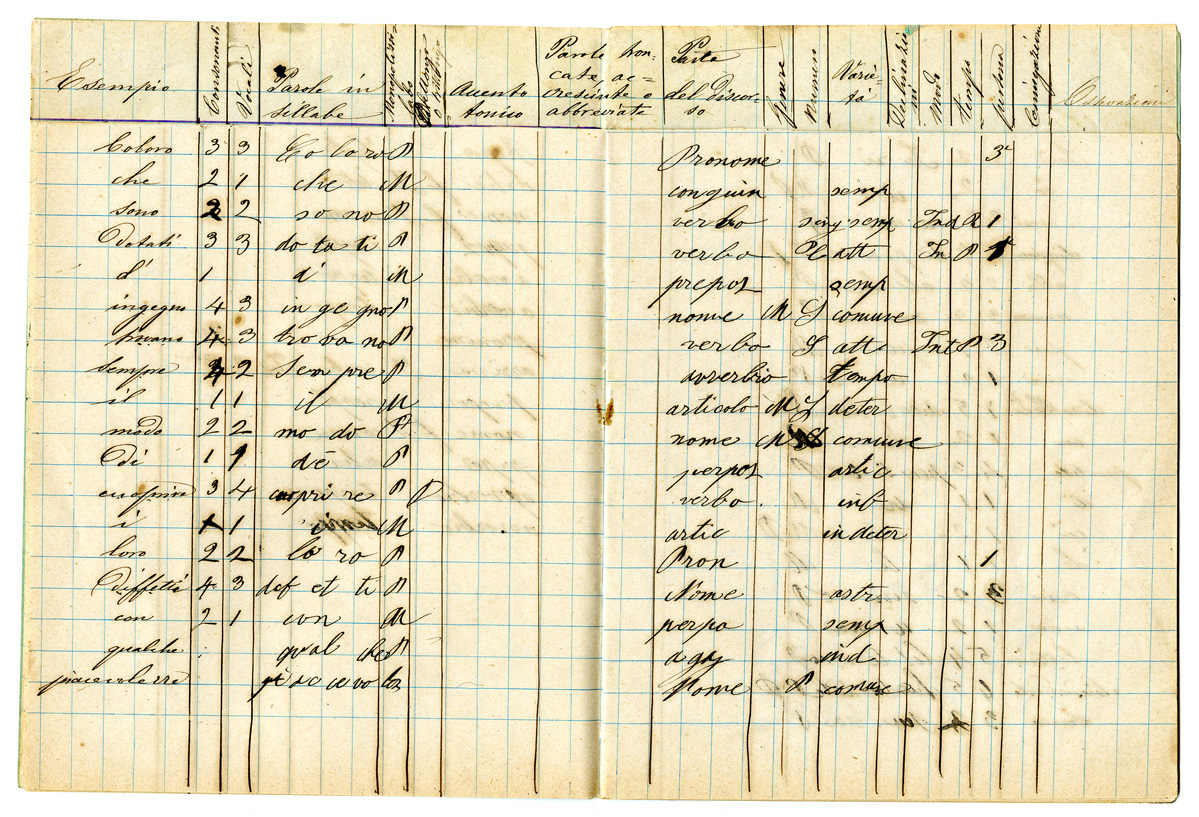 Esempio Consonanti Vocali Parole in sillabe Accento tonico Parole tron-cate ac-cresciute o abbreviate Parte del Discor-so Genere Numero Varie-tà Modo Tempo persona Osservazioni
Coloro 3 3 Co lo ro P Pronome 3ª
che 2 1 che M congiun semp
sono 2 2 so no P verbo semp Ind P 1
Dotati 3 3 do ta ti P verbo att In P
d' 1 d' M prepos semp
ingegno 4 3 in ge gno P nome M S comuve
trovano 4 3 tro va no P verbo S att Int P 3
sempre 4 2 Sem pre P avverbio tempo
il 1 1 il M articolo M S deter
modo 2 2 mo do P nome M S comuve
Di 1 1 P perpos artic
3 4 P P verbo inf
i 1 1 i M artic indeter
loro 2 2 lo ro P Pron 1 1
Diffetti 4 3 def et ti P Nome astr
con 2 1 con M perpo semp
qualche qual che P agg ind
Nome P comuve